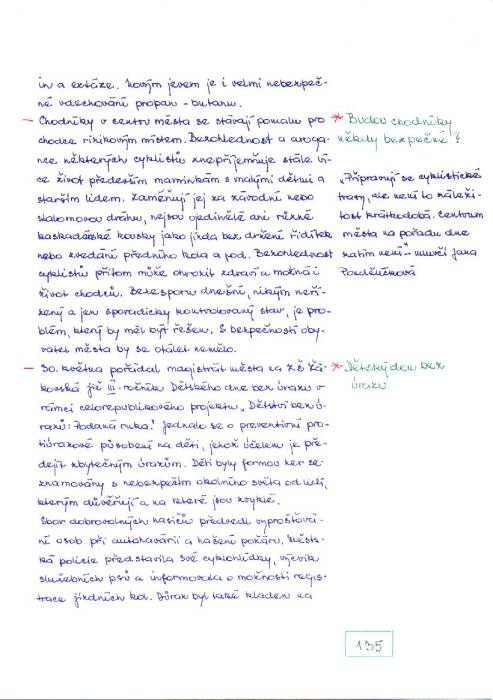 in a extáze. Novým jevem je i velmi nebezpeč-
né vdechování propan-butanu.
— Chodníky v centru města se stávají pomalu pro
chodce rizikovým místem. Bezohlednost a aroga-
nce některých cyklistů znepříjemňuje stále ví-
ce život především maminkám s malými dětmi a
starším lidem. Zaměňují jej za závodní nebo
slalomovou dráhu, nejsou ojedinělé ani různé
kaskadérské kousky jako jízda bez držení řídítek
nebo zvedání předního kola a pod. Bezohlednost
cyklistů přitom může ohrozit zdraví a možná i
život chodců. Bezesporu dnešní, nikým neří-
zený a jen sporadicky kontrolovaný stav, je pro-
blém, který by měl být řešen. S bezpečností oby-
vatel města by se otálet nemělo.
— 30. května pořádal magistrát města na ZŠ
již III. ročník Dětského dne bez úrazu v
rámci celorepublikového projektu „Dětství bez ú-
razů: Podaná ruka". Jednalo se o preventivní pro-
tiúrazové působení na děti, jehož účelem je pře-
dejít zbytečným úrazům. Děti byly formou her se-
znamovány s nebezpečím okolního světa od lidí,
kterým důvěřují a na které jsou zvyklé.
Sbor dobrovolných hasičů předvedl vyprošťová-
ní osob při autohavárii a hašení požáru. Měst-
ská policie představila své cyklohlídky, výcvik
služebních psů a informovala o možnosti regis-
trace jízdních kol. Důraz byl také kladen na
* Budou chodníky
někdy bezpečné?
„Připravují se cyklistické
traty, ale není to zálež-
itost krátkodobá. Centrum
města na pořadu dne
zatím není" - mluvčí Jana
* Dětský den bez
úrazu
135